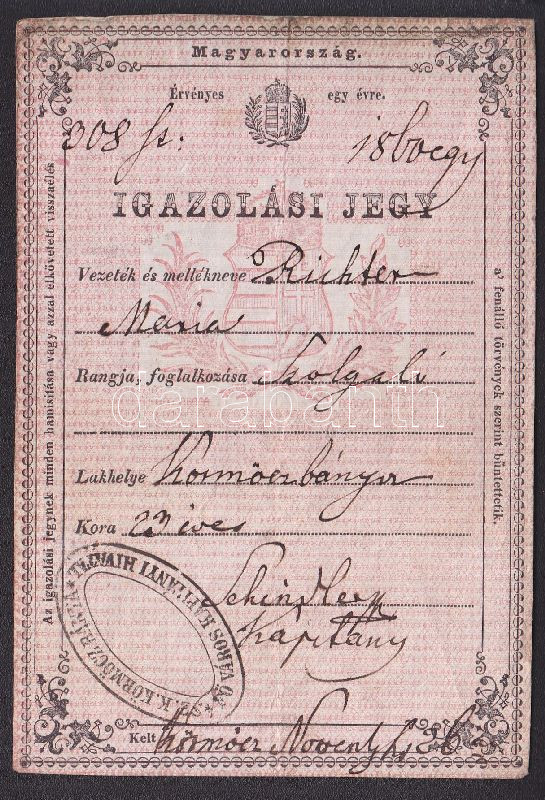 Magyarország.
Érvényes egy évre.
308 sz: 1860
IGAZOLÁSI JEGY
Vezeték és mellékneve Richter
Maria
Rangja, foglalkozása Szolgaló
darabanth
Lakhelye Körmöczbánya
Kora 23 éves
Schindler
Kapitány
Kelt Körmöcz
Az igazolási jegynek minden hamisítása vagy azzal elkövetett visszaélés
a' fenálló törvények szerint büntettetik.
VÁROS KAPITÁNYI HIVATAL